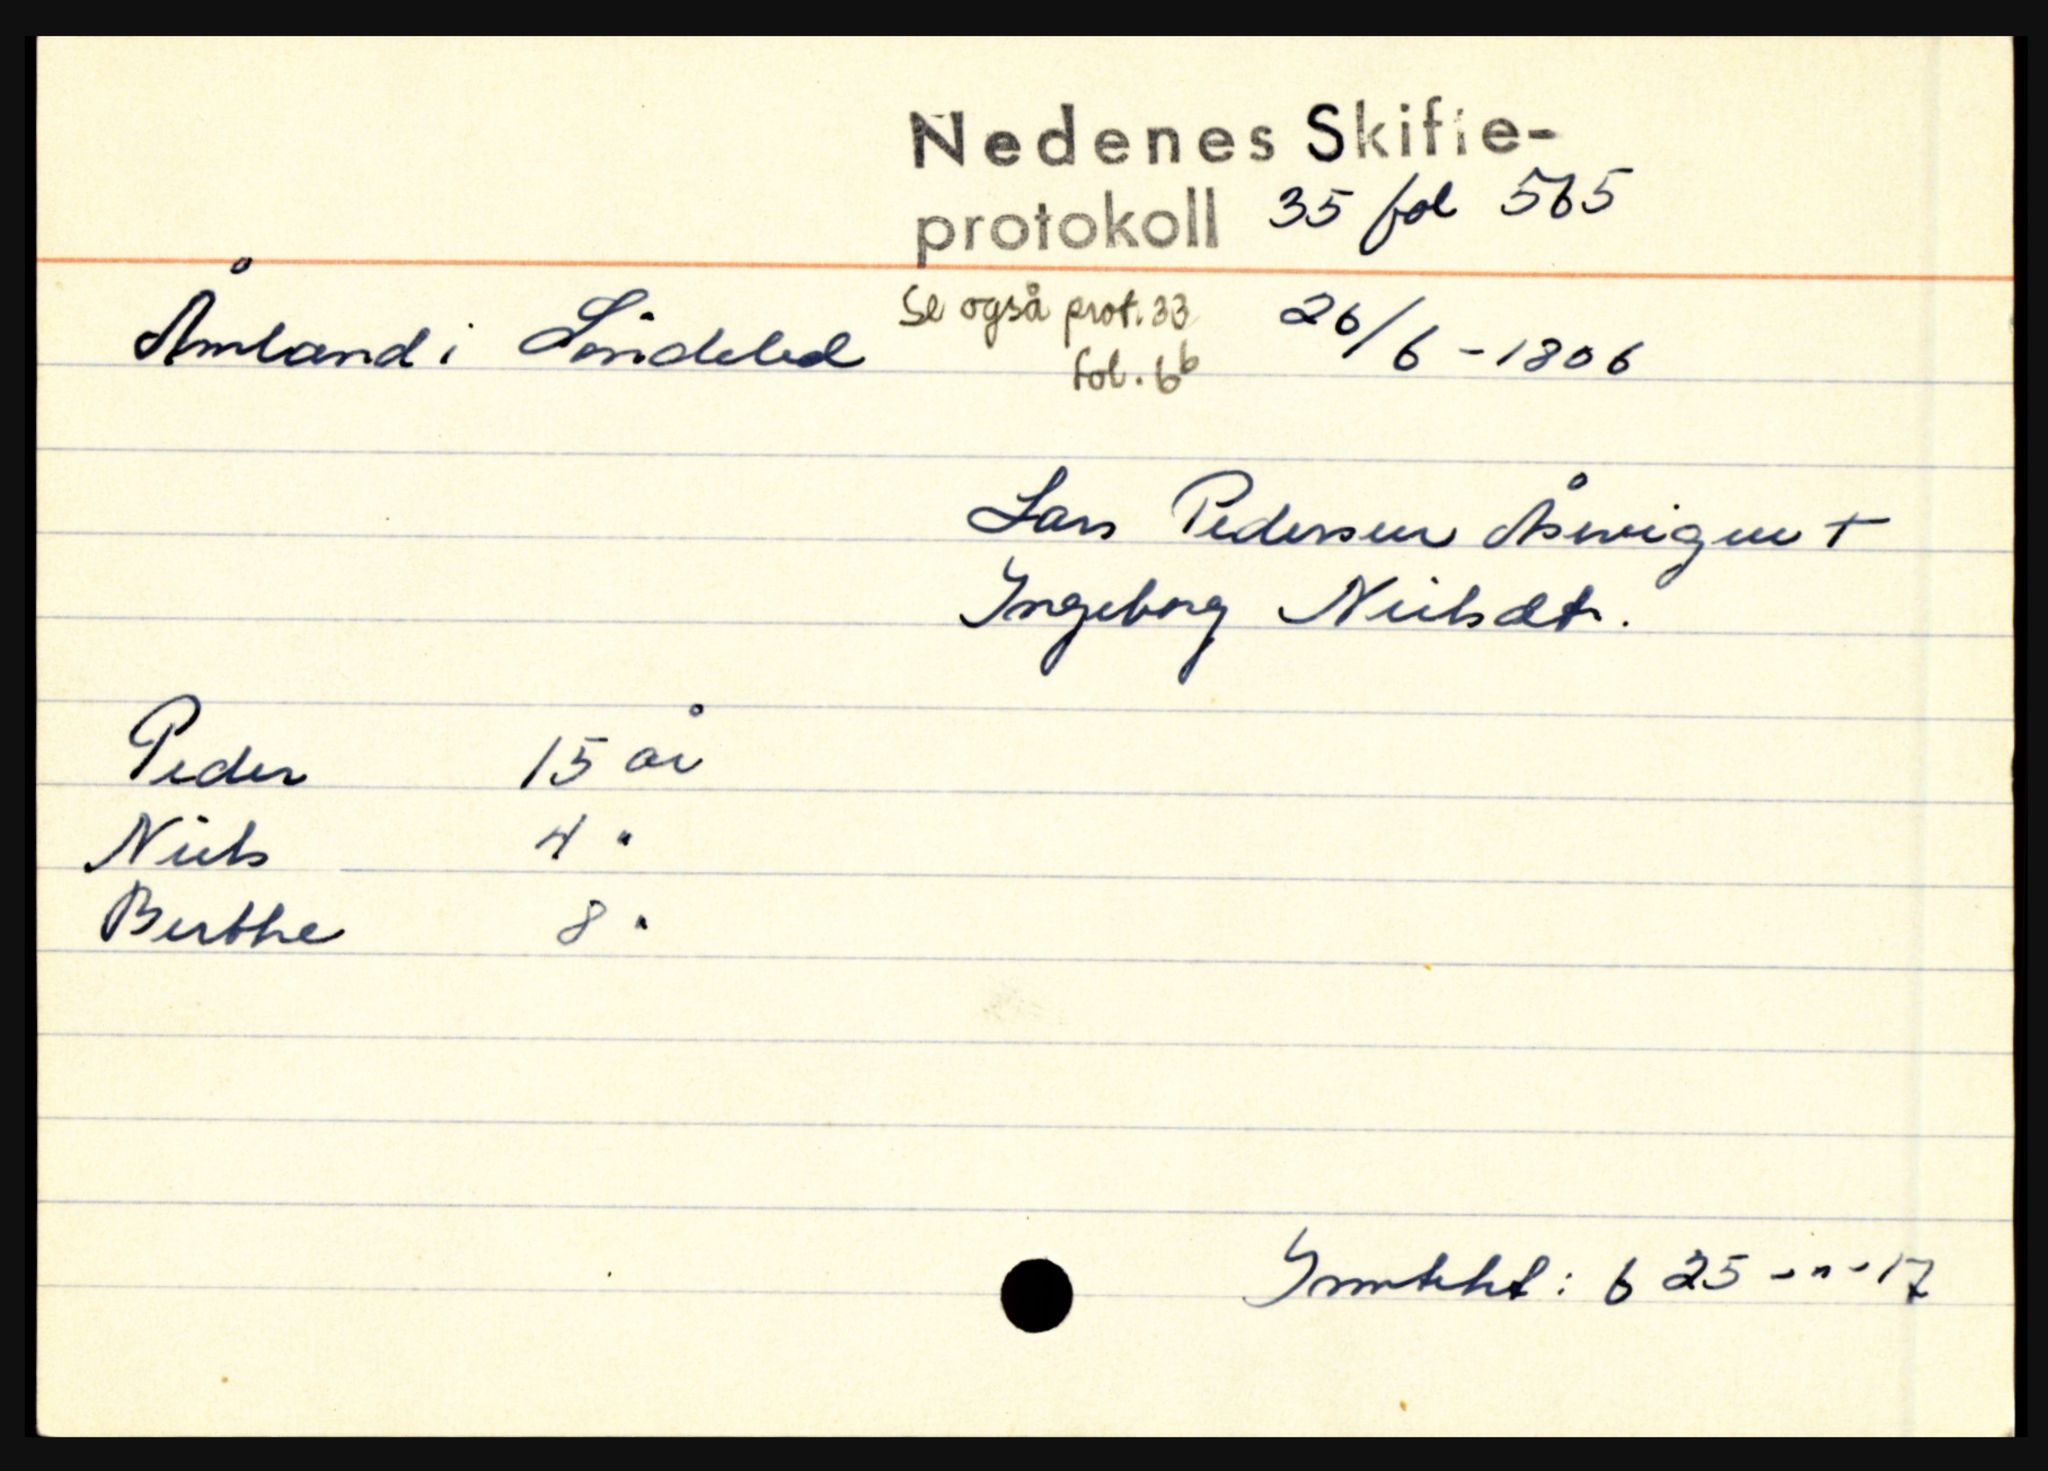 Nedenes Skifte-
protokoll 35 fol 565
Åmland i Söndeled Se også prot. 33 26/6 - 1806
fol. 6b
Lars Pedersen Åsvigen +
Ingeborg Nielsdt.
Peder 15 år
Niels 4 "
Berthe 8 "
6 25 - " - 17